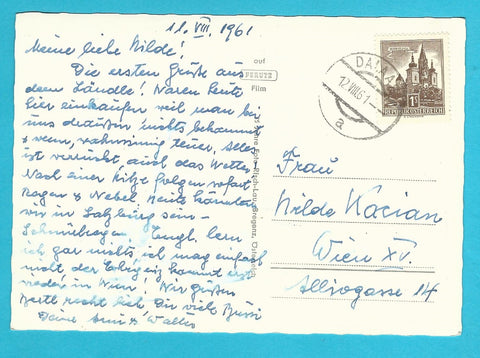 11. VIII. 1961
Meine liebe Hilde!
Die ersten Grüße aus
dem Ländle! Waren heute
hier einkaufen weil man bei
uns draußen nichts bekommt
wenn, wahnsinnig teuer. Alles
ist verrückt, auch das Wetter.
Nach einer Hitze folgen sofort
Regen & Nebel. Heute könnten
wir in Salzburg sein -
Schnürlregen. Engl. lern
ich gar nichts, ich mag einfach
nicht, der Ehrgeiz kommt erst
wieder in Wien! Wir grüßen
recht lieb Dir viele Bussi
Deine & Walter
auf
PERUTZ
Film
REPUBLIK ÖSTERREICH
12.VIII.61
a
Frau
Hilde Kacian
Wien XV.
Alliogasse 14